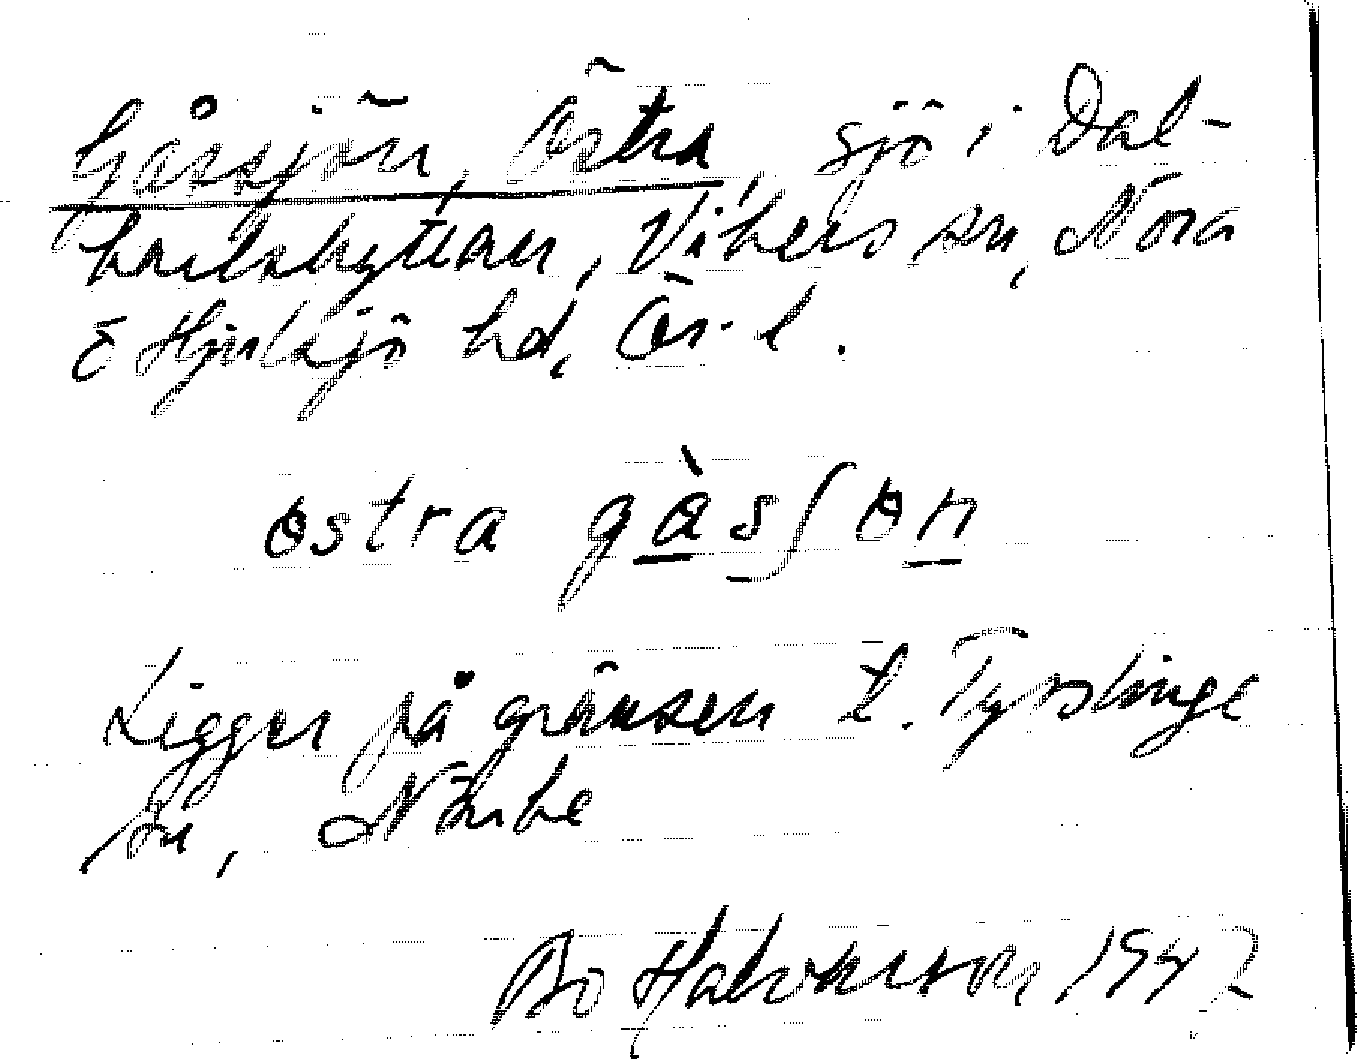 Gåssjön, Östra, sjö i Dal-
karlshyttan, Vikers sn, Nora
& Hjulsjö hd, Ör. l.
östra gàsʃön
Ligger på gränsen t. Tysslinge
sn, Närke
Bo 1942